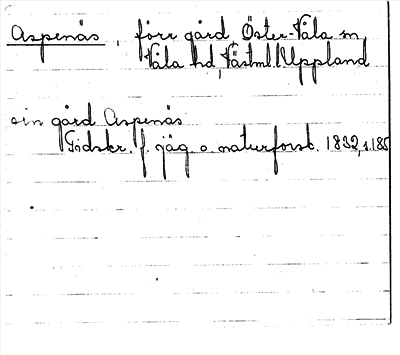 Aspenäs, förr gård Öster-Våla sn,
Våla hd, Västml. Uppland
sin gård Aspenäs
Tidskr. f. jäg. o. naturforsk. 1832, s. 185